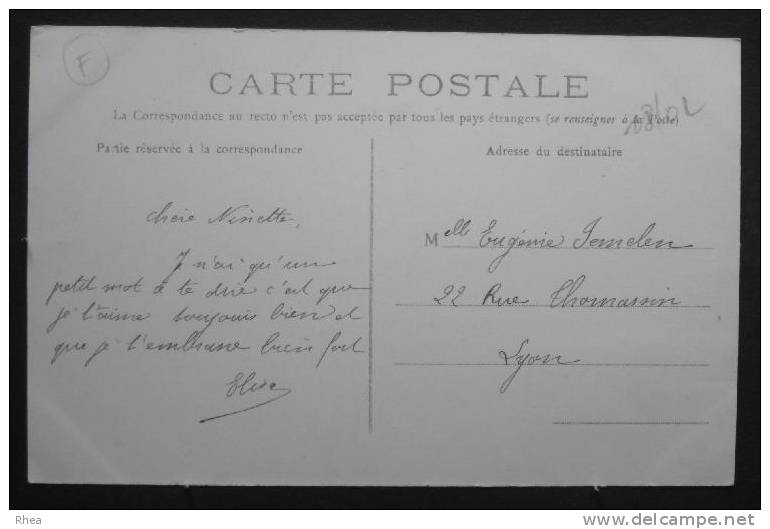 F
CARTE POSTALE
La Correspondance au recto n'est pas acceptée par tous les pays étrangers (se renseigner à la Poste)
Partie réservée à la correspondance
Adresse du destinataire
chère Ninette,
Je n'ai qu'un
petit mot à te dire c'est que
je t'aime toujours bien et
que je t'embrasse bien fort
Elise
Melle Eugénie
22 Rue Thomassin
Lyon
Rhea
delcampe.net